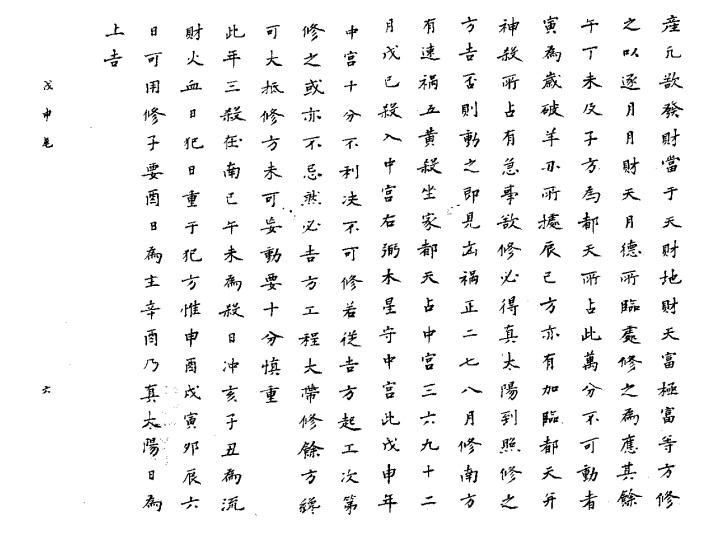 產凡欲發財當于天財地財天富極富等方修
之以逐月月財天月德所臨處修之為應其餘
午丁未及子方為都天所占此萬分不可動者
寅為歲破羊刃所據辰巳方亦有加臨都天并
神殺所占有急事欲修必得真太陽到照修之
方吉否則動之即見凶禍正二七八月修南方
有速禍五黃殺坐家都天占中宮三六九十二
月戊己殺入中宮右弼木星守中宮此戊申年
中宮十分不利决不可修若從吉方起工次第
修之或亦不忌然必吉方工程大帶修餘方纔
可大抵修方未可妄動要十分慎重
此年三殺在南巳午未為殺日冲亥子丑為流
財火血日犯日重于犯方惟申酉戌寅卯辰六
日可用修子要酉日為主辛酉乃真太陽日為
上吉
戊申毛
六